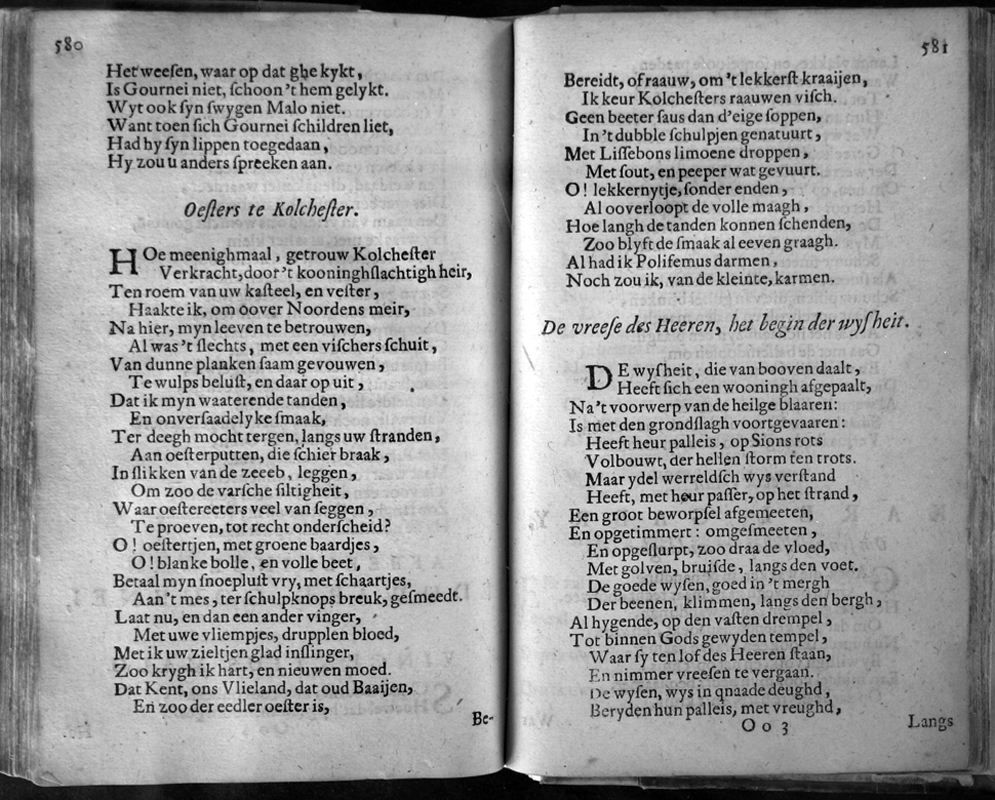 580
Het weeſen, waar op dat ghe kykt,
Is Gournei niet, ſchoon't hem gelykt.
Wyt ook ſyn ſwygen Malo niet.
Want toen ſich Gournei ſchildren liet,
Had hy ſyn lippen toegedaan,
Hy zou u anders ſpreeken aan.
Oeſters te Kolcheſter.
HOe meenighmaal, getrouw Kolcheſter
Verkracht, door't kooninghſlachtigh heir,
Ten roem van uw kaſteel, en veſter,
Haakte ik, om oover Noordens meir,
Na hier, myn leeven te betrouwen,
Al was't ſlechts, met een viſchers ſchuit,
Van dunne planken ſaam gevouwen,
Te wulps beluſt, en daar op uit,
Dat ik myn waaterende tanden,
En onverſaadelyke ſmaak,
Ter deegh mocht tergen, langs uw ſtranden,
Aan oeſterputten, die ſchier braak,
In ſlikken van de zeeeb, leggen,
Om zoo de varſche ſiltigheit,
Waar oeſtereeters veel van ſeggen,
Te proeven, tot recht onderſcheid?
O! oeſtertjen, met groene baardjes,
O! blanke bolle, en volle beet,
Betaal myn ſnoepluſt vry, met ſchaartjes,
Aan't mes, ter ſchulpknops breuk, geſmeedt.
Laat nu, en dan een ander vinger,
Met uwe vliempjes, drupplen bloed,
Met ik uw zieltjen glad inſlinger,
Zoo krygh ik hart, en nieuwen moed.
Dat Kent, ons Vlieland, dat oud Baaijen,
En zoo der eedler oeſter is,
Be-
581
Bereidt, of raauw, om 't lekkerſt kraaijen,
Ik keur Kolcheſters raauwen viſch.
Geen beeter ſaus dan d'eige ſoppen,
In't dubble ſchulpjen genatuurt,
Met Liſſebons limoene droppen,
Met ſout, en peeper wat gevuurt.
O! lekkernytje, ſonder enden,
Al ooverloopt de volle maagh,
Hoe langh de tanden konnen ſchenden,
Zoo blyft de ſmaak al eeven graagh.
Al had ik Polifemus darmen,
Noch zou ik, van de kleinte, karmen.
De vreeſe des Heeren, het begin der wyſheit.
DE wyſheit, die van booven daalt,
Heeft ſich een wooningh afgepaalt,
Na't voorwerp van de heilge blaaren:
Is met den grondſlagh voortgevaaren:
Heeft heur palleis, op Sions rots
Volbouwt, der hellen ſtorm ten trots.
Maar ydel werreldſch wys verſtand
Heeft, met heur paſſer, op het ſtrand,
Een groot beworpſel afgemeeten,
En opgetimmert: omgeſmeeten,
En opgeſlurpt, zoo draa de vloed,
Met golven, bruiſde, langs den voet.
De goede wyſen, goed in 't mergh
Der beenen, klimmen, langs den bergh,
Al hygende, op den vaſten drempel,
Tot binnen Gods gewyden tempel,
Waar ſy ten lof des Heeren ſtaan,
En nimmer vreeſen te vergaan.
De wyſen, wys in qnaade deughd,
Beryden hun palleis, met vreughd,
Oo 3
Langs